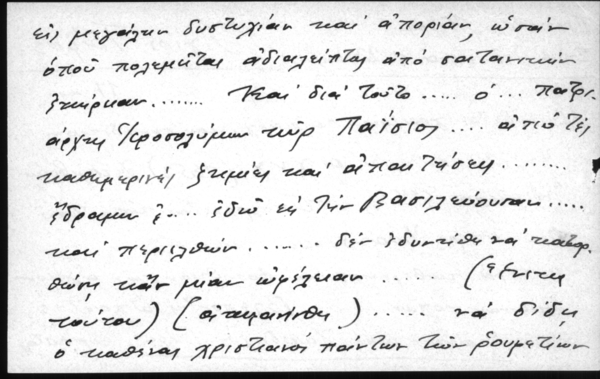 εἰς μεγάλην δυστυχίαν καὶ ἀπορίαν, ὡσὰν
ὁποῦ πολεμῆται ἀδιαλείπτως ἀπὸ σατανικὴν
....... Καὶ διὰ τοῦτο ..... ὁ ... πατρι-
άρχης Ἱεροσολύμων κὺρ Παΐσιος .... ἀπὸ τὲς
καθημερινὲς ζημίες καὶ ἀπαιτήσεις ........
ἔδραμεν .... ἐδῶ εἰς τὴν Βασιλεύουσαν .....
καὶ περιελθὼν ...... δὲν ἐδυνήθη νὰ κατορ-
θώσῃ κἂν μίαν ὠφέλειαν ..... (
τούτου) ( ) ..... νὰ δίδῃ
ὁ καθένας χριστιανὸς πάντων τῶν